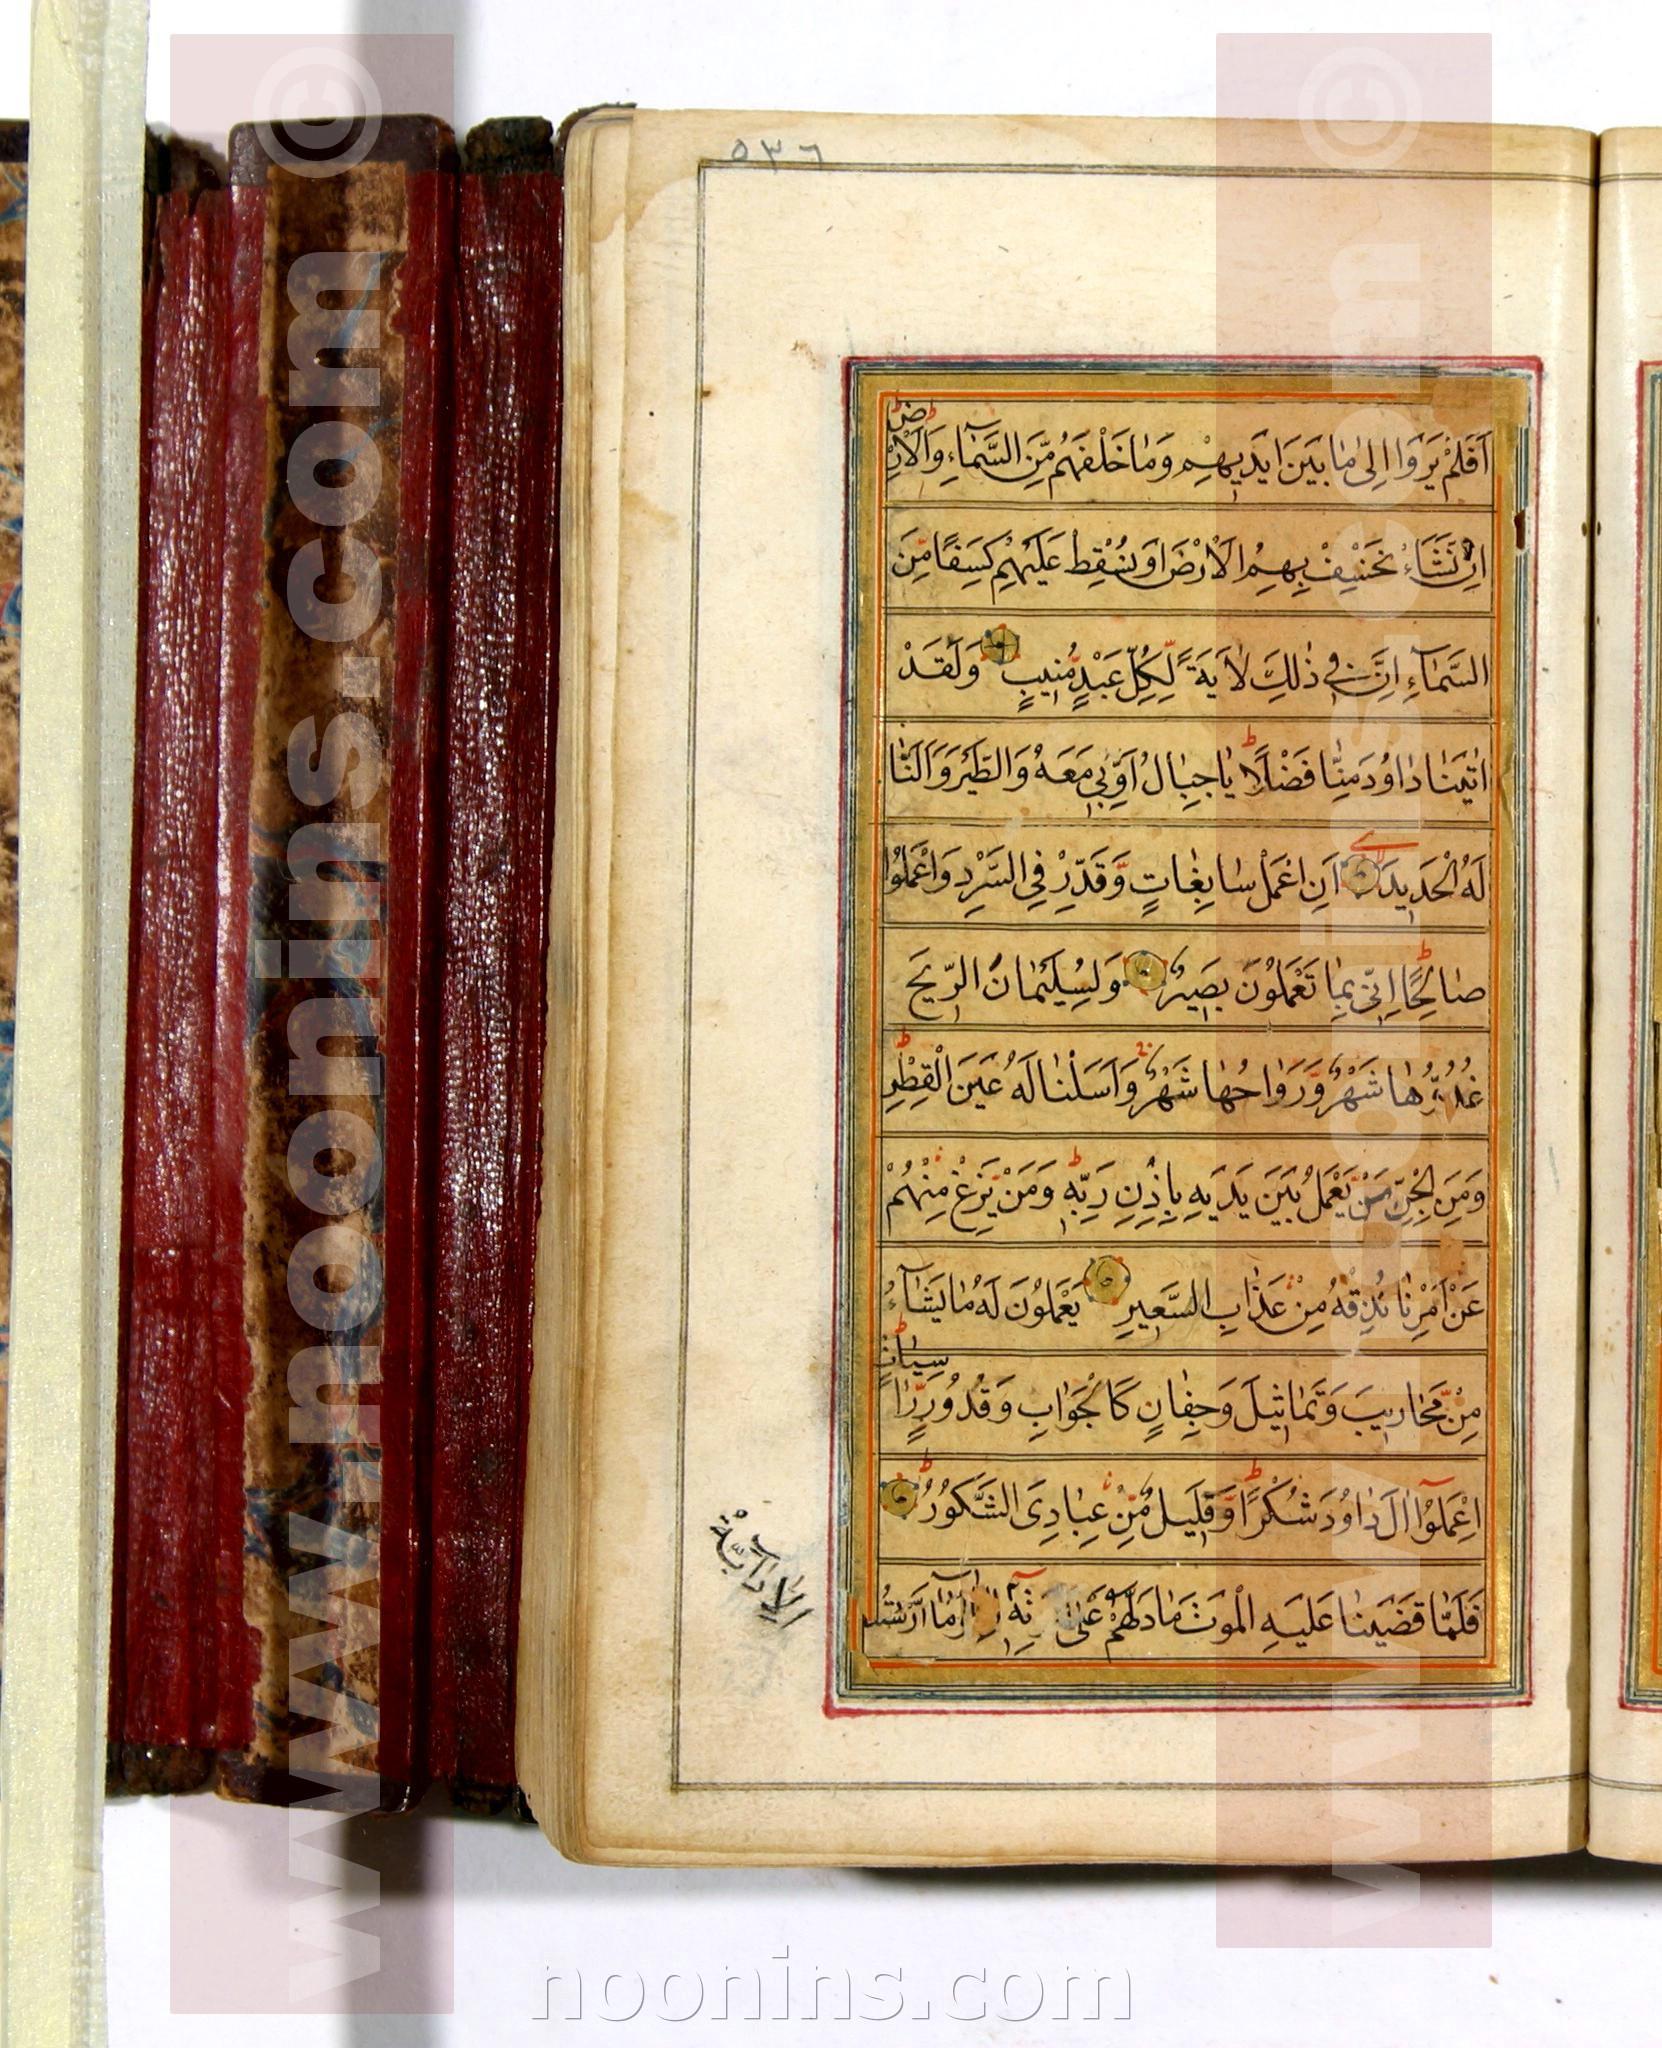 ٥٣٦
اَفَلَمْ يَرَوْا اِلىٰ مٰا بَيْنَ اَيْدِيهِمْ وَمٰا خَلْفَهُمْ مِّنَ السَّمٰآءِ وَالْاَرْضِ
اِنْ نَّشَاْءْ نَخْسِفْ بِهِمُ الْاَرْضَ اَوْ نُسْقِطْ عَلَيْهِمْ كِسَفًا مِّنَ
السَّمٰآءِ اِنَّ فِي ذٰلِكَ لَاٰيَةً لِّكُلِّ عَبْدٍ مُّنِيبٍ وَلَقَدْ
اٰتَيْنٰا دٰاوُدَ مِنّٰا فَضْلًا يٰا جِبٰالُ اَوِّبِي مَعَهُ وَالطَّيْرَ وَاَلَنّٰا
لَهُ الْحَدِيدَ اَنِ اعْمَلْ سٰابِغٰاتٍ وَّقَدِّرْ فِي السَّرْدِ وَاعْمَلُوا
صٰالِحًا اِنِّي بِمٰا تَعْمَلُونَ بَصِيرٌ وَلِسُلَيْمٰانَ الرِّيحَ
غُدُوُّهٰا شَهْرٌ وَّرَوٰاحُهٰا شَهْرٌ وَاَسَلْنٰا لَهُ عَيْنَ الْقِطْرِ
وَمِنَ الْجِنِّ مَنْ يَّعْمَلُ بَيْنَ يَدَيْهِ بِاِذْنِ رَبِّهِ وَمَنْ يَزِغْ مِنْهُمْ
عَنْ اَمْرِنٰا نُذِقْهُ مِنْ عَذٰابِ السَّعِيرِ يَعْمَلُونَ لَهُ مٰا يَشٰآءُ
مِنْ مَّحٰارِيبَ وَتَمٰاثِيلَ وَجِفٰانٍ كَالْجَوٰابِ وَقُدُورٍ رّٰاسِيٰاتٍ
اِعْمَلُوٓا اٰلَ دٰاوُدَ شُكْرًا وَّقَلِيلٌ مِّنْ عِبٰادِيَ الشَّكُورُ
فَلَمّٰا قَضَيْنٰا عَلَيْهِ الْمَوْتَ مٰا دَلَّهُمْ عَلىٰ
اِلَّا دٰابَّةُ
www.noonins.com ©
www.noonins.com ©
noonins.com